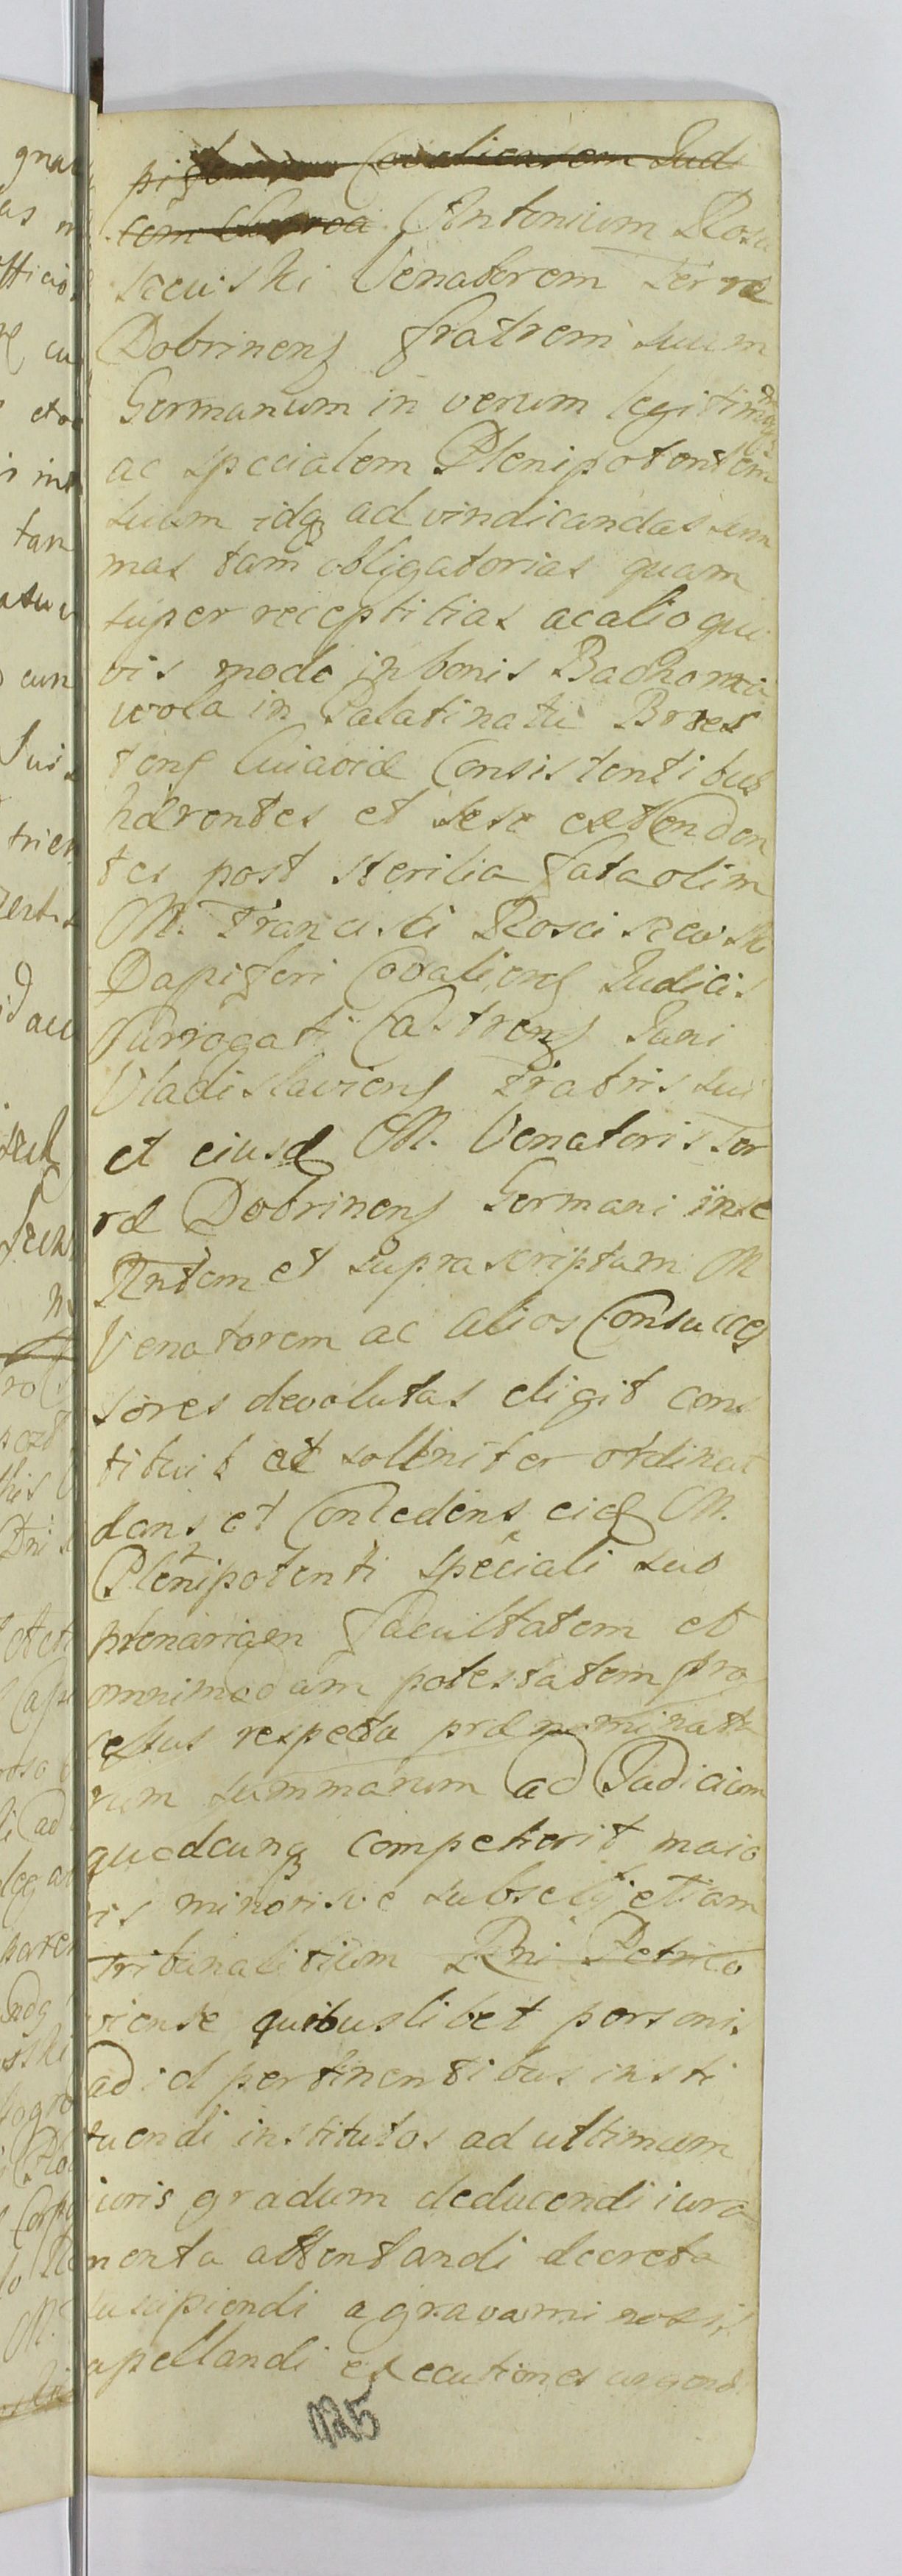 Covaliensem Jud
cem Antonium Rosci
szewski Venatorem Terræ
Dobrinens fratrem suum
Germanum in verum legitimũq
ac specialem Plenipotentem
suum idq ad vindicandas sum
mas tam obligatorias quam
super receptitias ac alio qui
vis modo in bonis Bachorna
wola in Palatinatu Bres
tens Cuiaviæ Consistentibus
hærentes et sese extenden
tes post sterilia fata olim
M. Francisci Roscisze wski
Dapiferi Covaliens Judicis
Surrogati Castrens Juni
Vladislaviens Fratris sui
et eiusd M. Venatoris Ter
ræ Dobrinens Germani in se
Rntem et supra scriptum M
Venatorem ac alios Consucces
sores devolutas eligit cons
tituit et solleniter ordinat
dans et Concedens eid M.
Plenipotenti speciali suo
plenariam facultatem et
omnimodam potestatem pro
cessus respectu prænominata
rum summarum ad Judicium
quodcunq competierit maio
ris minorisve subselij etiam
Tribunalitium Rni Petrico
viense quibuslibet personis
ad id pertinentibus insti
tuendi institutos ad ultimum
iuris gradum deducendi iura
menta attentandi decreta
suscipiendi a gravaminosis
apellandi executiones urgend
125
gna
as
fficio
cu
et
tan
cun
Suis
trien
acc
his
Dni
ad